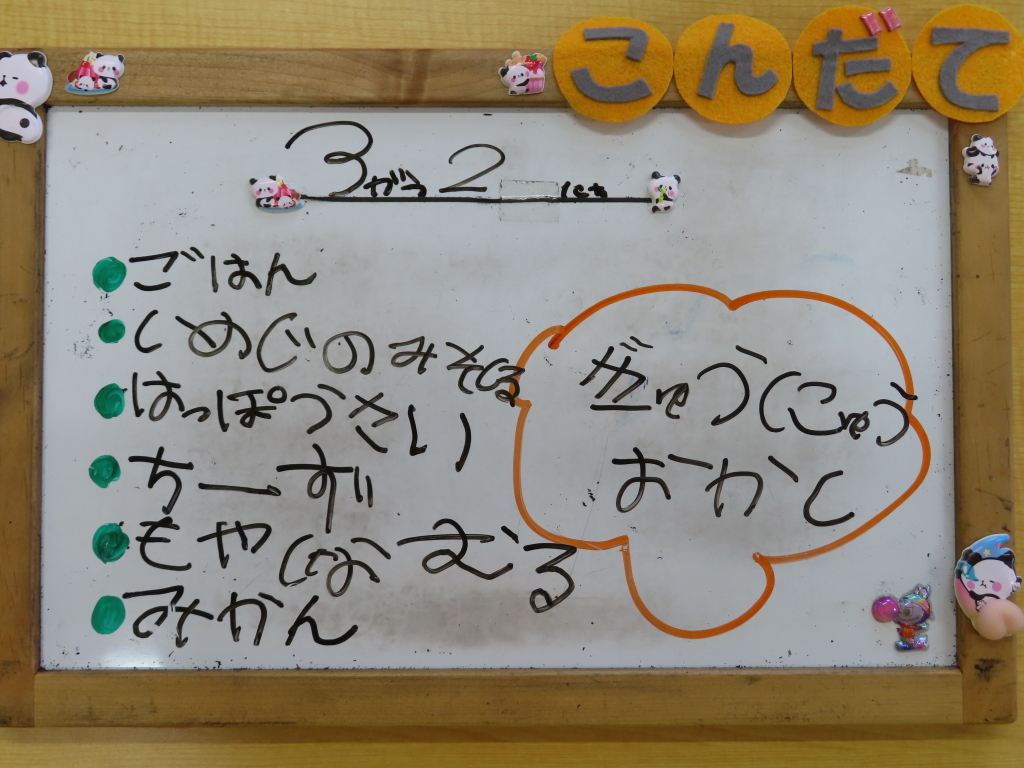 こんだて
3がつ2にち
ごはん
しめじのみそしる
はっぽうさい
ちーず
もやしなむる
みかん
ぎゅうにゅう
おかし